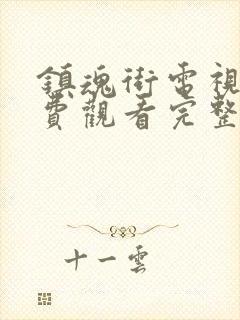 鎮魂街電視
費觀看完整
十一雲